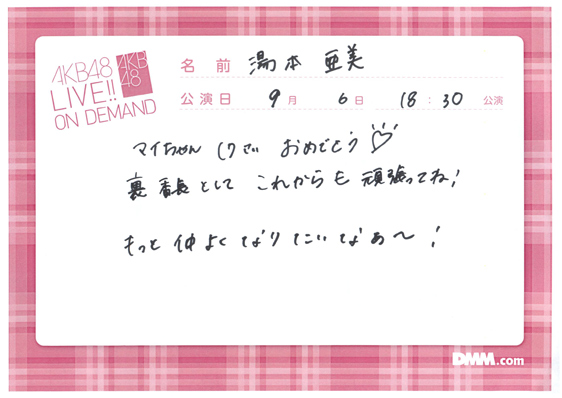 AKB48
LIVE!!
ON DEMAND
AKB
48
名前 湯本亜美
公演日 9月 6日 18:30 公演
マイちゃん おめでとう♡
裏番長として これからも 頑張ってね!
もっと 仲よく なりたいなぁ〜!
DMM.com